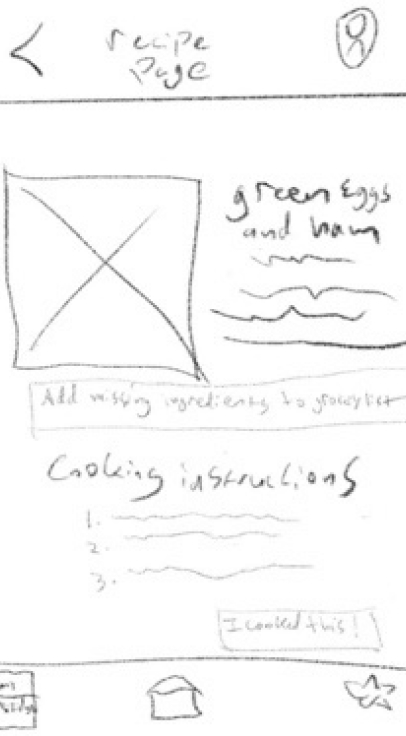 recipe
page
green Eggs
and ham
Add missing ingredients to grocery list
Cooking instructions
1.
2.
3.
I cooked this!